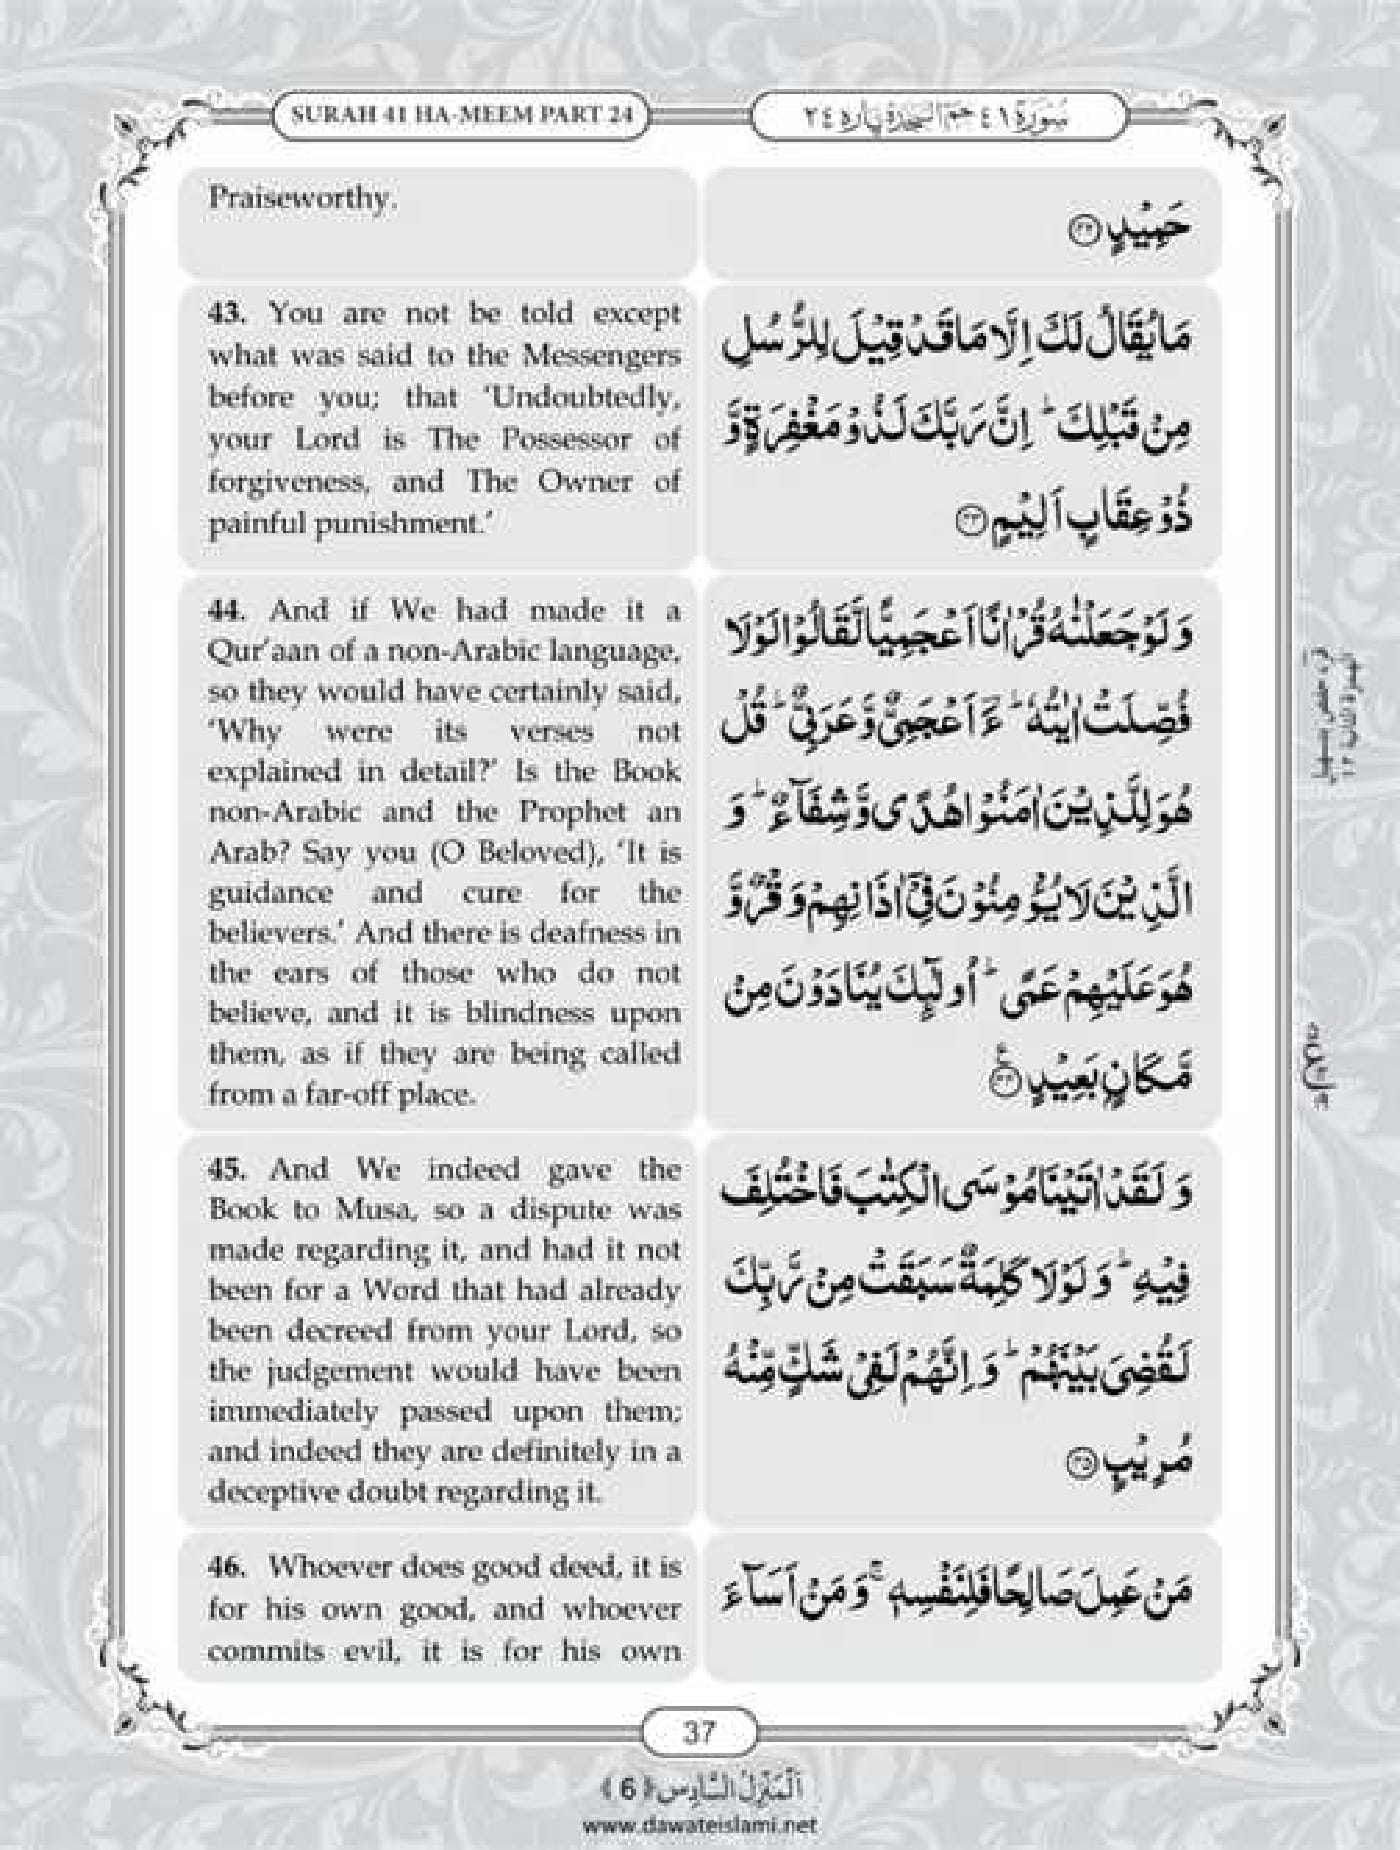 SURAH 41 HA-MEEM PART 24
سُوْرَةُ ٤١ حٰمٓ السَّجْدَة پارہ ٢٤
Praiseworthy.
حَمِيْدٍ ﴿۴۲﴾
43. You are not be told except
what was said to the Messengers
before you; that ‘Undoubtedly,
your Lord is The Possessor of
forgiveness, and The Owner of
painful punishment.’
مَا يُقَالُ لَكَ اِلَّا مَا قَدْ قِيْلَ لِلرُّسُلِ
مِنْ قَبْلِكَ ؕ اِنَّ رَبَّكَ لَذُوْ مَغْفِرَةٍ وَّ
ذُوْ عِقَابٍ اَلِيْمٍ ﴿۴۳﴾
44. And if We had made it a
Qur’aan of a non-Arabic language,
so they would have certainly said,
‘Why were its verses not
explained in detail?’ Is the Book
non-Arabic and the Prophet an
Arab? Say you (O Beloved), ‘It is
guidance and cure for the
believers.’ And there is deafness in
the ears of those who do not
believe, and it is blindness upon
them, as if they are being called
from a far-off place.
وَ لَوْ جَعَلْنٰهُ قُرْاٰنًا اَعْجَمِيًّا لَّقَالُوْا لَوْ لَا
فُصِّلَتْ اٰيٰتُهٗ ؕ ءَؔاَعْجَمِیٌّ وَّ عَرَبِیٌّ ؕ قُلْ
هُوَ لِلَّذِيْنَ اٰمَنُوْا هُدًى وَّ شِفَآءٌ ؕ وَ
الَّذِيْنَ لَا يُؤْمِنُوْنَ فِیْۤ اٰذَانِهِمْ وَقْرٌ وَّ
هُوَ عَلَيْهِمْ عَمًى ؕ اُولٰٓئِكَ يُنَادَوْنَ مِنْ
مَّكَانٍۭ بَعِيْدٍ ﴿۴۴﴾ ع
45. And We indeed gave the
Book to Musa, so a dispute was
made regarding it, and had it not
been for a Word that had already
been decreed from your Lord, so
the judgement would have been
immediately passed upon them;
and indeed they are definitely in a
deceptive doubt regarding it.
وَ لَقَدْ اٰتَيْنَا مُوْسَى الْكِتٰبَ فَاخْتُلِفَ
فِيْهِ ؕ وَ لَوْ لَا كَلِمَةٌ سَبَقَتْ مِنْ رَّبِّكَ
لَقُضِیَ بَيْنَهُمْ ؕ وَ اِنَّهُمْ لَفِیْ شَكٍّ مِّنْهُ
مُرِيْبٍ ﴿۴۵﴾
46. Whoever does good deed, it is
for his own good, and whoever
commits evil, it is for his own
مَنْ عَمِلَ صَالِحًا فَلِنَفْسِهٖ ۚ وَ مَنْ اَسَآءَ
37
اَلْمَنْزِلُ السَّادِس ﴿6﴾
www.dawateislami.net